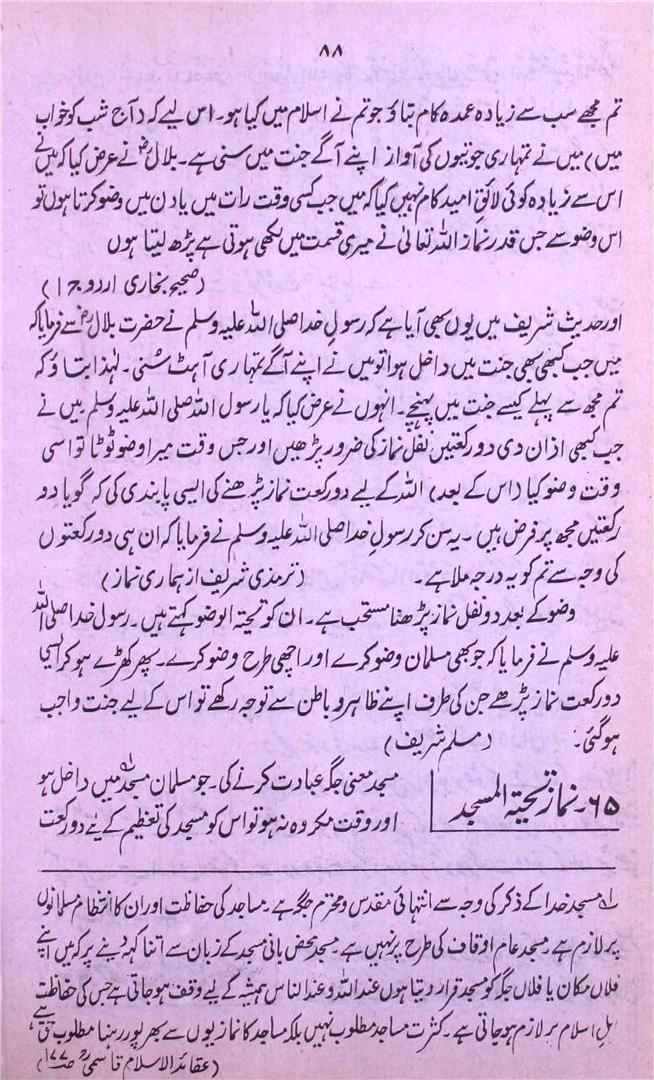 ۸۸
تم مجھے سب سے زیادہ عمدہ کام بتاؤ جو تم نے اسلام میں کیا ہو۔ اس لیے کہ (آج شب کو خواب
میں) میں نے تمہاری جوتیوں کی آواز اپنے آگے جنت میں سنی ہے۔ بلالؓ نے عرض کیا کہ میں نے
اس سے زیادہ کوئی لائق امید کام نہیں کیا کہ میں جب کسی وقت رات میں یا دن میں وضو کرتا ہوں تو
اس وضو سے جس قدر نماز اللہ تعالیٰ نے میری قسمت میں لکھی ہوتی ہے پڑھ لیتا ہوں
(صحیح بخاری اردو ج۱)
اور حدیث شریف میں یوں بھی آیا ہے کہ رسولِ خدا صلی اللہ علیہ وسلم نے حضرت بلالؓ سے فرمایا کہ
میں جب کبھی بھی جنت میں داخل ہوا تو میں نے اپنے آگے تمہاری آہٹ سُنی۔ لہٰذا بتاؤ کہ
تم مجھ سے پہلے کیسے جنت میں پہنچے۔ انہوں نے عرض کیا کہ یا رسول اللہ صلی اللہ علیہ وسلم میں نے
جب کبھی اذان دی دو رکعتیں نفل نماز کی ضرور پڑھیں اور جس وقت میرا وضو ٹوٹا تو اسی
وقت وضو کیا (اس کے بعد) اللہ کے لیے دو رکعت نماز پڑھنے کی ایسی پابندی کی کہ گویا دو
رکعتیں مجھ پر فرض ہیں۔ یہ سن کر رسولِ خدا صلی اللہ علیہ وسلم نے فرمایا کہ ان ہی دو رکعتوں
کی وجہ سے تم کو یہ درجہ ملا ہے۔ (ترمذی شریف از ہماری نماز)
وضو کے بعد دو نفل نماز پڑھنا مستحب ہے۔ ان کو تحیۃ الوضو کہتے ہیں۔ رسول خدا صلی اللہ
علیہ وسلم نے فرمایا کہ جو بھی مسلمان وضو کرے اور اچھی طرح وضو کرے۔ پھر کھڑے ہو کر ایسی
دو رکعت نماز پڑھے جن کی طرف اپنے ظاہر و باطن سے توجہ رکھے تو اس کے لیے جنت واجب
ہو گئی۔ (مسلم شریف)
۶۵۔ نماز تحیۃ المسجد
مسجد معنی جگہ عبادت کرنے کی۔ جو مسلمان مسجد میں داخل ہو
اور وقت مکروہ نہ ہو تو اس کو مسجد کی تعظیم کے لیے دو رکعت
مسجد خدا کے ذکر کی وجہ سے انتہائی مقدس و محترم جگہ ہے۔ مساجد کی حفاظت اور ان کا انتظام مسلمانوں
پر لازم ہے۔ مسجد عام اوقاف کی طرح پر نہیں ہے۔ مسجد محض بانی مسجد کے زبان سے اتنا کہہ دینے پر کہ میں اپنے
فلاں مکان یا فلاں جگہ کو مسجد قرار دیتا ہوں عنداللہ و عندالناس ہمیشہ کے لیے وقف ہو جاتی ہے جس کی حفاظت
اہلِ اسلام پر لازم ہو جاتی ہے۔ کثرت مساجد مطلوب نہیں بلکہ مساجد کا نمازیوں سے بھرپور رہنا مطلوبِ حق ہے
(عقائد الاسلام قاسمیؒ ص۱۷۷)